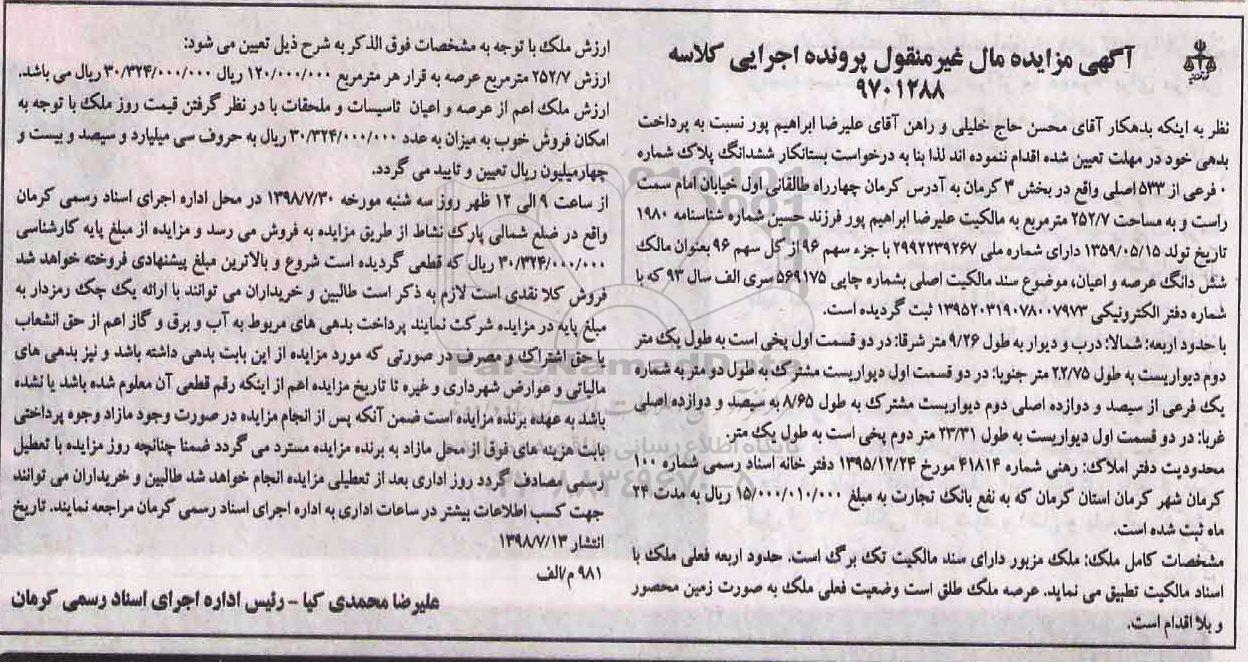 آگهی مزایده مال غیرمنقول پرونده اجرایی کلاسه
۹۷۰۱۲۸۸
نظر به اینکه بدهکار آقای محسن حاج خلیلی و راهن آقای علیرضا ابراهیم پور نسبت به پرداخت
بدهی خود در مهلت تعیین شده اقدام ننموده اند لذا بنا به درخواست بستانکار ششدانگ پلاک شماره
۰ فرعی از ۵۳۳ اصلی واقع در بخش ۳ کرمان به آدرس کرمان چهارراه طالقانی اول خیابان امام سمت
راست و به مساحت ۲۵۲/۷ مترمربع به مالکیت علیرضا ابراهیم پور فرزند حسین شماره شناسنامه ۱۹۸۰
تاریخ تولد ۱۳۵۹/۰۵/۱۵ دارای شماره ملی ۲۹۹۲۲۳۹۲۶۷ با جزء سهم ۹۶ از کل سهم ۹۶ بعنوان مالک
شش دانگ عرصه و اعیان، موضوع سند مالکیت اصلی بشماره چاپی ۵۶۹۱۷۵ سری الف سال ۹۳ که با
شماره دفتر الکترونیکی ۱۳۹۵۲۰۳۱۹۰۷۸۰۰۷۹۷۳ ثبت گردیده است.
با حدود اربعه: شمالا: درب و دیوار به طول ۹/۲۶ متر شرقا: در دو قسمت اول پخی است به طول یک متر
دوم دیواریست به طول ۲۲/۷۵ متر جنوبا: در دو قسمت اول دیواریست مشترک به طول دو متر به شماره
یک فرعی از سیصد و دوازده اصلی دوم دیواریست مشترک به طول ۸/۶۵ به سیصد و دوازده اصلی
غربا: در دو قسمت اول دیواریست به طول ۲۳/۳۱ متر دوم پخی است به طول یک متر.
محدودیت دفتر املاک: رهنی شماره ۴۱۸۱۴ مورخ ۱۳۹۵/۱۲/۲۴ دفتر خانه اسناد رسمی شماره ۱۰۰
کرمان شهر کرمان استان کرمان که به نفع بانک تجارت به مبلغ ۱۵/۰۰۰/۰۱۰/۰۰۰ ریال به مدت ۲۴
ماه ثبت شده است.
مشخصات کامل ملک: ملک مزبور دارای سند مالکیت تک برگ است. حدود اربعه فعلی ملک با
اسناد مالکیت تطبیق می نماید. عرصه ملک طلق است وضعیت فعلی ملک به صورت زمین محصور
و بلا اقدام است.
ارزش ملک با توجه به مشخصات فوق الذکر به شرح ذیل تعیین می شود:
ارزش ۲۵۲/۷ مترمربع عرصه به قرار هر مترمربع ۱۲۰/۰۰۰/۰۰۰ ریال ۳۰/۳۲۴/۰۰۰/۰۰۰ ریال می باشد.
ارزش ملک اعم از عرصه و اعیان تاسیسات و ملحقات با در نظر گرفتن قیمت روز ملک با توجه به
امکان فروش خوب به میزان به عدد ۳۰/۳۲۴/۰۰۰/۰۰۰ ریال به حروف سی میلیارد و سیصد و بیست و
چهارمیلیون ریال تعیین و تایید می گردد.
از ساعت ۹ الی ۱۲ ظهر روز سه شنبه مورخه ۱۳۹۸/۷/۳۰ در محل اداره اجرای اسناد رسمی کرمان
واقع در ضلع شمالی پارک نشاط از طریق مزایده به فروش می رسد و مزایده از مبلغ پایه کارشناسی
۳۰/۳۲۴/۰۰۰/۰۰۰ ریال که قطعی گردیده است شروع و بالاترین مبلغ پیشنهادی فروخته خواهد شد
فروش کلا نقدی است لازم به ذکر است طالبین و خریداران می توانند با ارائه یک چک رمزدار به
مبلغ پایه در مزایده شرکت نمایند پرداخت بدهی های مربوط به آب و برق و گاز اعم از حق انشعاب
یا حق اشتراک و مصرف در صورتی که مورد مزایده از این بابت بدهی داشته باشد و نیز بدهی های
مالیاتی و عوارض شهرداری و غیره تا تاریخ مزایده اعم از اینکه رقم قطعی آن معلوم شده باشد یا نشده
باشد به عهده برنده مزایده است ضمن آنکه پس از انجام مزایده در صورت وجود مازاد وجوه پرداختی
بابت هزینه های فوق از محل مازاد به برنده مزایده مسترد می گردد ضمنا چنانچه روز مزایده با تعطیل
رسمی مصادف گردد روز اداری بعد از تعطیلی مزایده انجام خواهد شد طالبین و خریداران می توانند
جهت کسب اطلاعات بیشتر در ساعات اداری به اداره اجرای اسناد رسمی کرمان مراجعه نمایند. تاریخ
انتشار ۱۳۹۸/۷/۱۳
۹۸۱ م/الف
علیرضا محمدی کیا - رئیس اداره اجرای اسناد رسمی کرمان
ParsNamadData